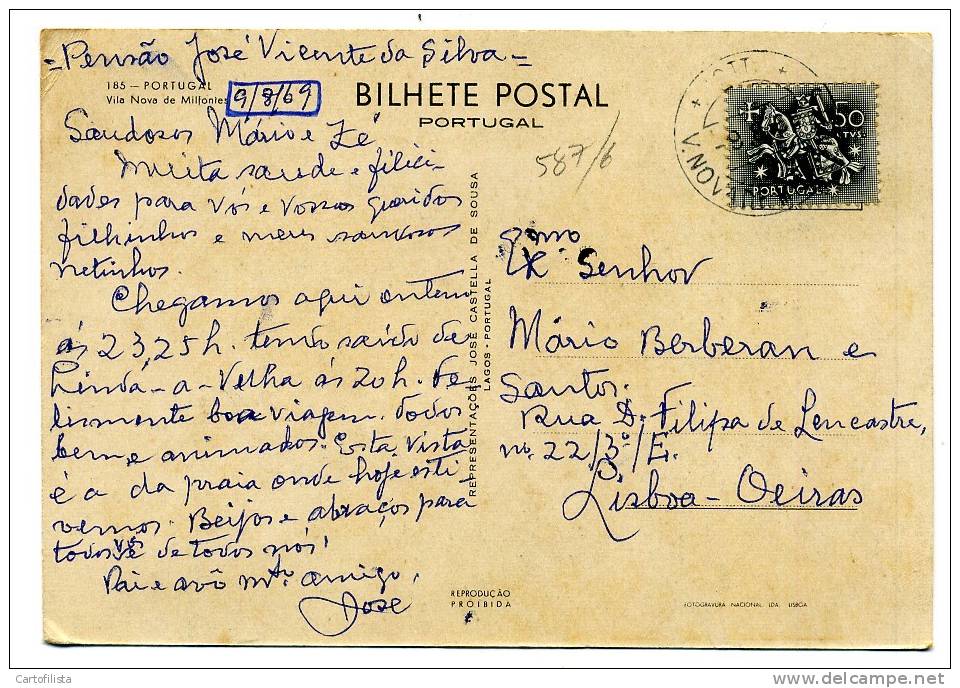 = Pensão José Vicente da Silva =
185 — PORTUGAL
Vila Nova de Milfontes
9/8/69
BILHETE POSTAL
PORTUGAL
587/6
Saudosos Mário e Zé
Muita saude e filici
dades para vós e vossos queridos
filhinhos e meus saudosos
netinhos.
Chegamos aqui ontem
ás 23,25h. tendo saído de
Linda-a-Velha ás 20h. Fe
lismente boa viagem. Todos
bem e animados. Esta vista
é a da praia onde hoje esti
vemos. Beijos e abraços para
todos vós de todos nós!
Pai e avô mto. amigo,
José
REPRESENTAÇÕES JOSÉ CASTELLA DE SOUSA
LAGOS - PORTUGAL
CTT
V. NOVA
50
CTVS.
PORTUGAL
Exmo Senhor
Mário Berberan e
Santos.
Rua D. Filipa de Lencastre,
no. 22/3º/E.
Lisboa - Oeiras
REPRODUÇÃO
PROIBIDA
FOTOGRAVURA NACIONAL LDA. LISBOA
Cartofilista
delcampe.net